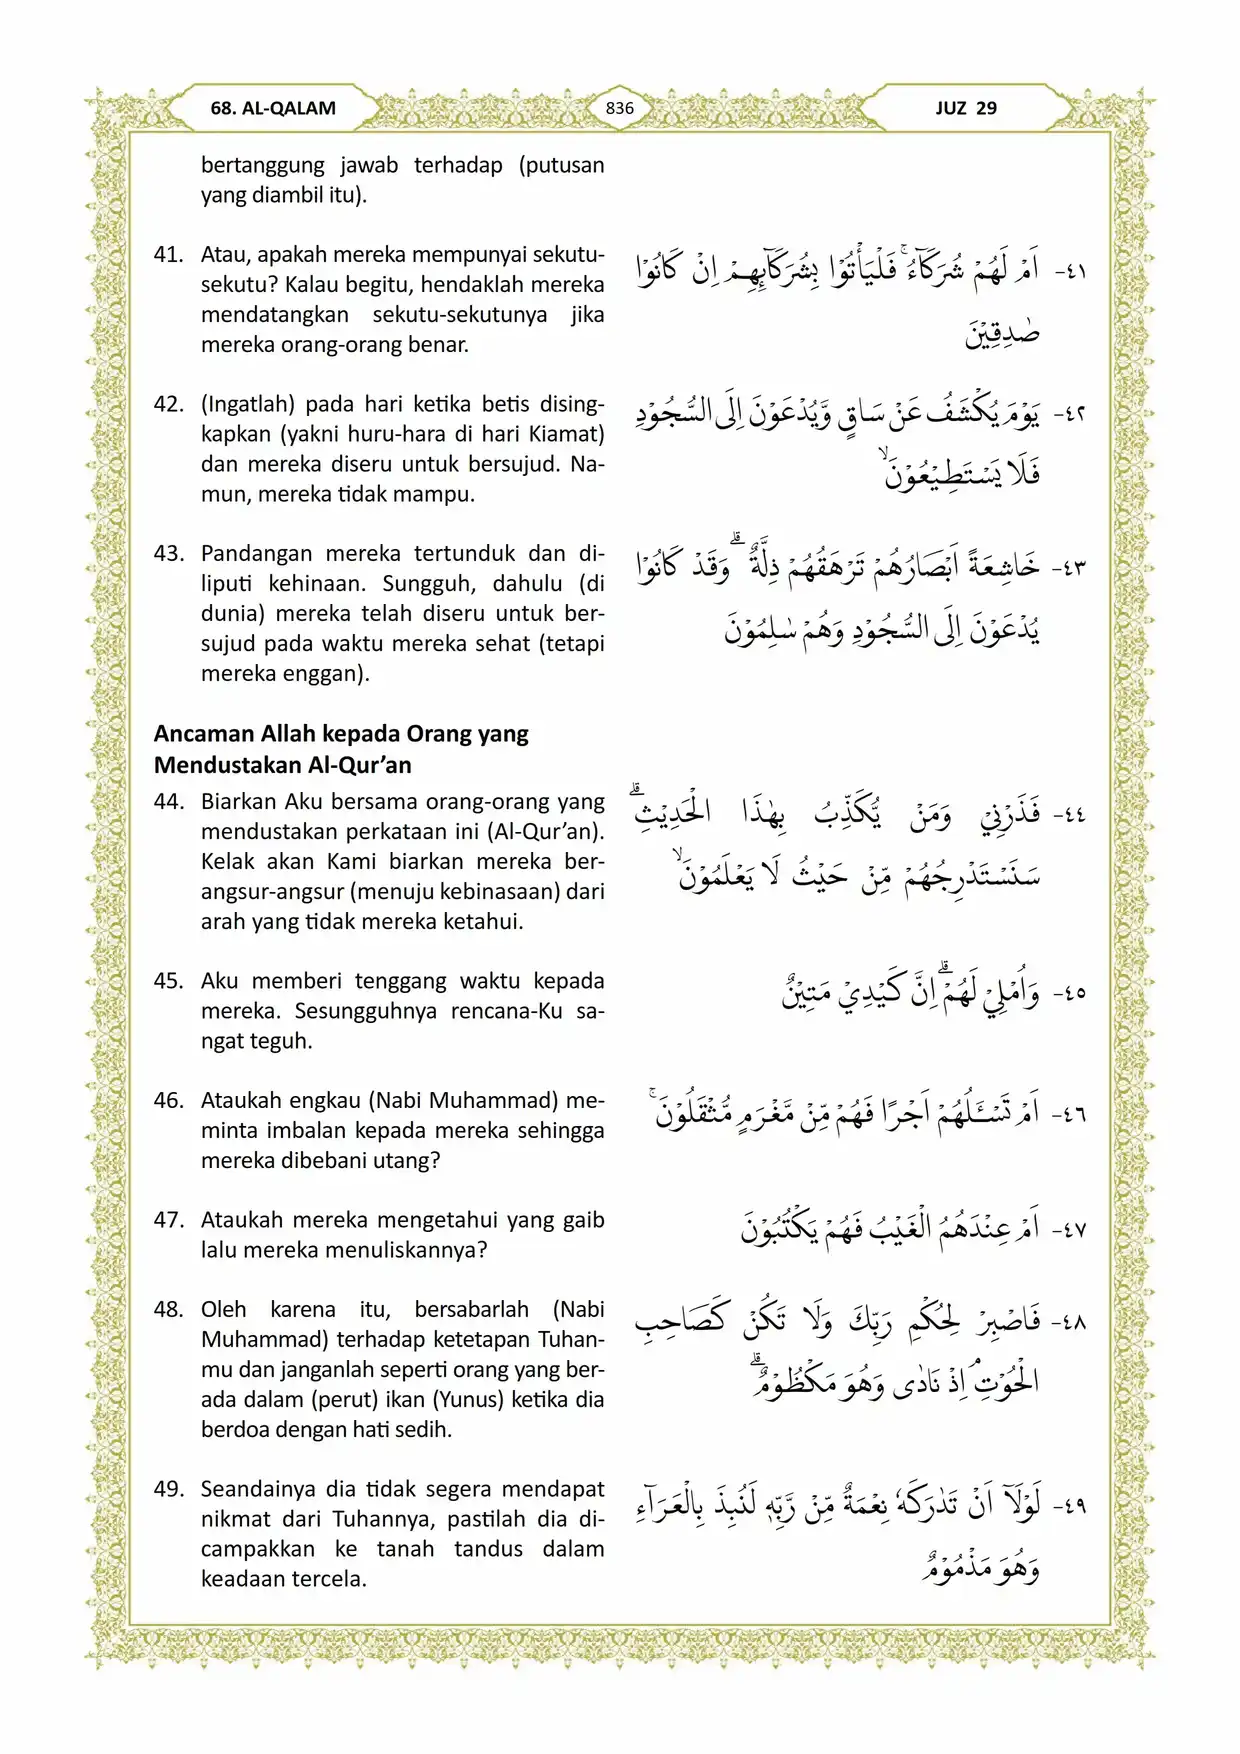 68. AL-QALAM
836
JUZ 29
bertanggung jawab terhadap (putusan
yang diambil itu).
41. Atau, apakah mereka mempunyai sekutu-
sekutu? Kalau begitu, hendaklah mereka
mendatangkan sekutu-sekutunya jika
mereka orang-orang benar.
٤١- اَمْ لَهُمْ شُرَكَاۤءُۚ فَلْيَأْتُوْا بِشُرَكَاۤىِٕهِمْ اِنْ كَانُوْا
صٰدِقِيْنَ
42. (Ingatlah) pada hari ketika betis dising-
kapkan (yakni huru-hara di hari Kiamat)
dan mereka diseru untuk bersujud. Na-
mun, mereka tidak mampu.
٤٢- يَوْمَ يُكْشَفُ عَنْ سَاقٍ وَّيُدْعَوْنَ اِلَى السُّجُوْدِ
فَلَا يَسْتَطِيْعُوْنَۙ
43. Pandangan mereka tertunduk dan di-
liputi kehinaan. Sungguh, dahulu (di
dunia) mereka telah diseru untuk ber-
sujud pada waktu mereka sehat (tetapi
mereka enggan).
٤٣- خَاشِعَةً اَبْصَارُهُمْ تَرْهَقُهُمْ ذِلَّةٌ ۗوَقَدْ كَانُوْا
يُدْعَوْنَ اِلَى السُّجُوْدِ وَهُمْ سٰلِمُوْنَ
Ancaman Allah kepada Orang yang
Mendustakan Al-Qur’an
44. Biarkan Aku bersama orang-orang yang
mendustakan perkataan ini (Al-Qur’an).
Kelak akan Kami biarkan mereka ber-
angsur-angsur (menuju kebinasaan) dari
arah yang tidak mereka ketahui.
٤٤- فَذَرْنِيْ وَمَنْ يُّكَذِّبُ بِهٰذَا الْحَدِيْثِۗ
سَنَسْتَدْرِجُهُمْ مِّنْ حَيْثُ لَا يَعْلَمُوْنَۙ
45. Aku memberi tenggang waktu kepada
mereka. Sesungguhnya rencana-Ku sa-
ngat teguh.
٤٥- وَاُمْلِيْ لَهُمْۗ اِنَّ كَيْدِيْ مَتِيْنٌ
46. Ataukah engkau (Nabi Muhammad) me-
minta imbalan kepada mereka sehingga
mereka dibebani utang?
٤٦- اَمْ تَسْـَٔلُهُمْ اَجْرًا فَهُمْ مِّنْ مَّغْرَمٍ مُّثْقَلُوْنَۚ
47. Ataukah mereka mengetahui yang gaib
lalu mereka menuliskannya?
٤٧- اَمْ عِنْدَهُمُ الْغَيْبُ فَهُمْ يَكْتُبُوْنَ
48. Oleh karena itu, bersabarlah (Nabi
Muhammad) terhadap ketetapan Tuhan-
mu dan janganlah seperti orang yang ber-
ada dalam (perut) ikan (Yunus) ketika dia
berdoa dengan hati sedih.
٤٨- فَاصْبِرْ لِحُكْمِ رَبِّكَ وَلَا تَكُنْ كَصَاحِبِ
الْحُوْتِۘ اِذْ نَادٰى وَهُوَ مَكْظُوْمٌۗ
49. Seandainya dia tidak segera mendapat
nikmat dari Tuhannya, pastilah dia di-
campakkan ke tanah tandus dalam
keadaan tercela.
٤٩- لَوْلَآ اَنْ تَدٰرَكَهٗ نِعْمَةٌ مِّنْ رَّبِّهٖ لَنُبِذَ بِالْعَرَاۤءِ
وَهُوَ مَذْمُوْمٌ